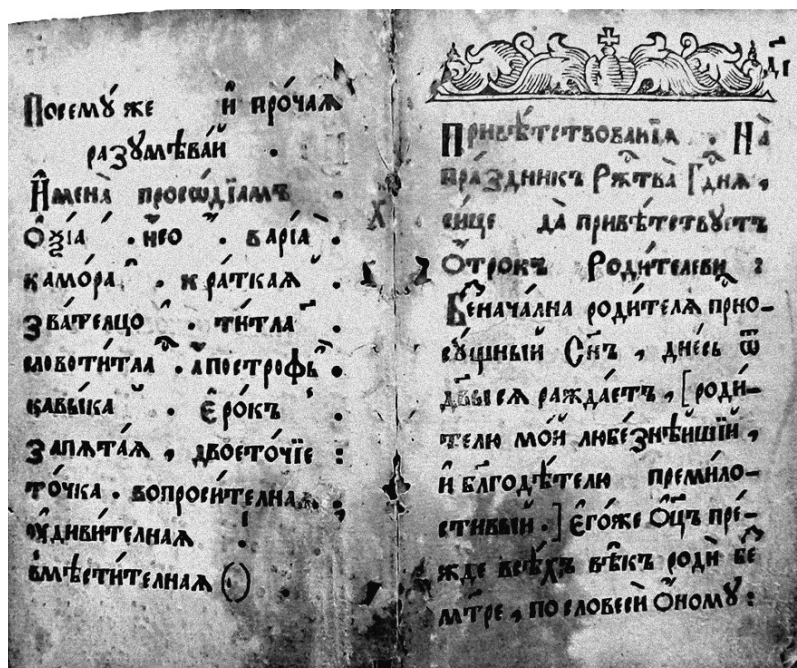 Посемꙋ́ же и҆ про́чаѧ
разꙋмѣва́й .
И҆менà просѡді́амъ .
Ѻ҆ѯі́а . и҆со . варі́а .
камо́ра . кра́ткаѧ .
зва́телцо . ти́тла .
словоти́тла . а҆постро́фъ .
кавы́ка . є҆ро́къ .
запѧта́ѧ , двоето́чїе :
то́чка . вопроси́телнаѧ ;
ᲂу҆диви́телнаѧ !
вмѣсти́телнаѧ ()
д҃і
Привѣ́тствованїѧ . На̀
пра́здникъ Рж҃тва̀ Гд҃нѧ ,
си́це да̀ привѣ́тствꙋетъ
Ѻ҆́трокъ Роди́телєви :
Бе҇нача́лна роди́телѧ при҇но-
сꙋ́щный Сн҃ъ , дне́сь ѿ
дв҃ы сѧ ражда́етъ , [роди́-
телю мо́й любе́знѣйшїй ,
и҆ бл҃годѣ́телю преми́ло-
стивый .] є҆го́же Ѻ҆ц҃ъ пре́-
жде всѣ́хъ вѣ́къ родѝ бе҇
мт҃ре , по словесѝ Ѻ҆́номꙋ :